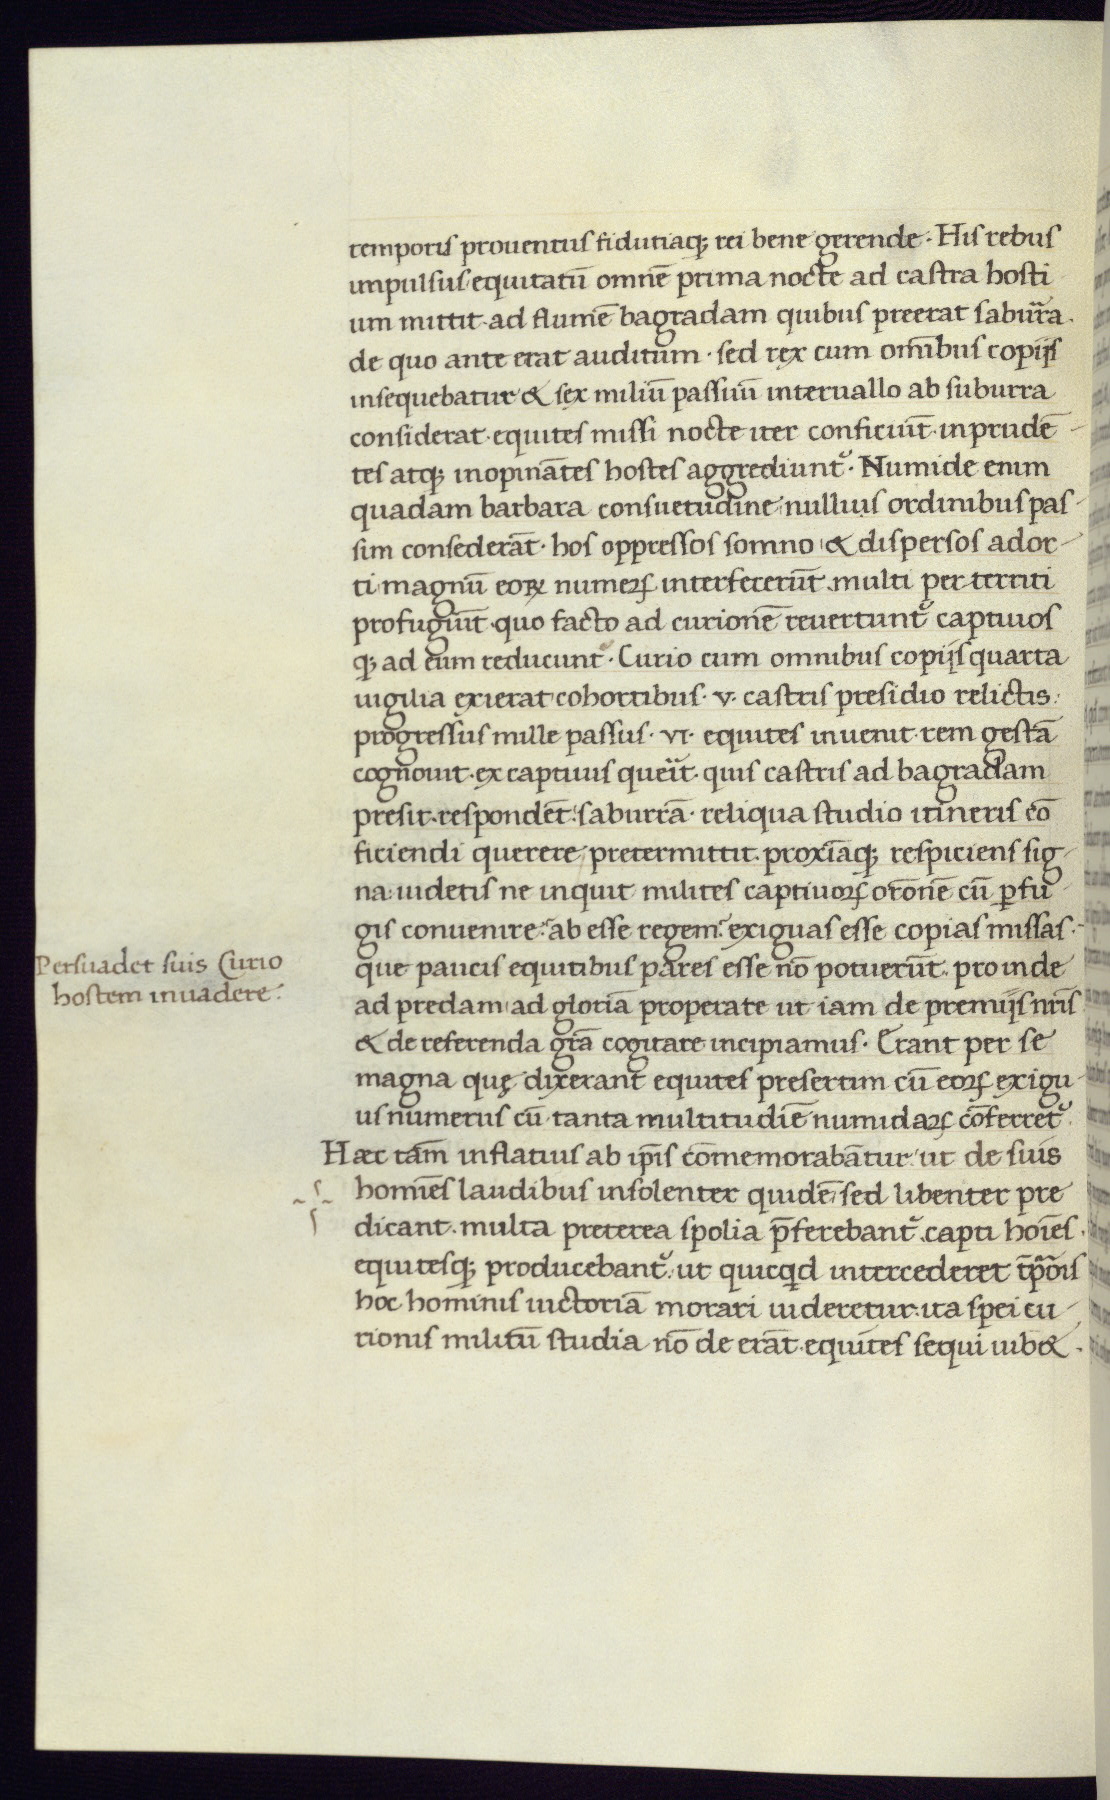 temporis prouentus fidutiaq; rei bene gerende. His rebus
impulsus equitatū omnē prima nocte ad castra hosti
um mittit ad flumē bagradam quibus preerat saburra.
de quo ante erat auditum. sed rex cum omībus copijs
insequebatur & sex miliū passuū interuallo ab suburra
considerat. equites missi nocte iter conficiūt. inprudē
tes atq; inopinātes hostes aggrediunt᷑. Numide enim
quadam barbara consuetudine nullius ordinibus pas
sim consederāt. hos oppressos somno & dispersos ador
ti magnū eoꝝ numeꝝ interfecerūt. multi per territi
profugiūt. quo facto ad curionē reuertunt᷑ captiuos
q; ad eum reducunt. Curio cum omnibus copijs quarta
uigilia exierat cohortibus. v. castris presidio relictis.
progressus mille passus. vi. equites inuenit. rem gestā
cognouit. ex captiuis querit. quis castris ad bagradam
presit. respondēt. saburrā. reliqua studio itineris cō
ficiendi querere pretermittit. proxīaq; respiciens sig
na. uidetis ne inquit milites captiuoꝝ orōnē cū ꝑfu
gis conuenire. ab esse regem. exiguas esse copias missas.
Persuadet suis Curio
hostem inuadere.
que paucis equitibus pares esse nō potuerūt. proinde
ad predam ad gloriā properate ut iam de premijs nr̄is
& de referenda gr̄a cogitare incipiamus. Erant per se
magna quę dixerant equites presertim cū eoꝝ exigu
us numerus cū tanta multitudīe numidaꝝ cōferret᷑.
Hæc tam̄ inflatius ab ip̄is cōmemorabātur. ut de suis
homīes laudibus insolenter quidē sed libenter pre
dicant. multa preterea spolia p̄ferebant᷑. capti hoīes.
equitesq; producebant᷑. ut quicqd intercederet tp̄oris
hoc hominis uictoriā morari uideretur. ita spei cu
rionis militū studia nō de erāt. equites sequi iub&.